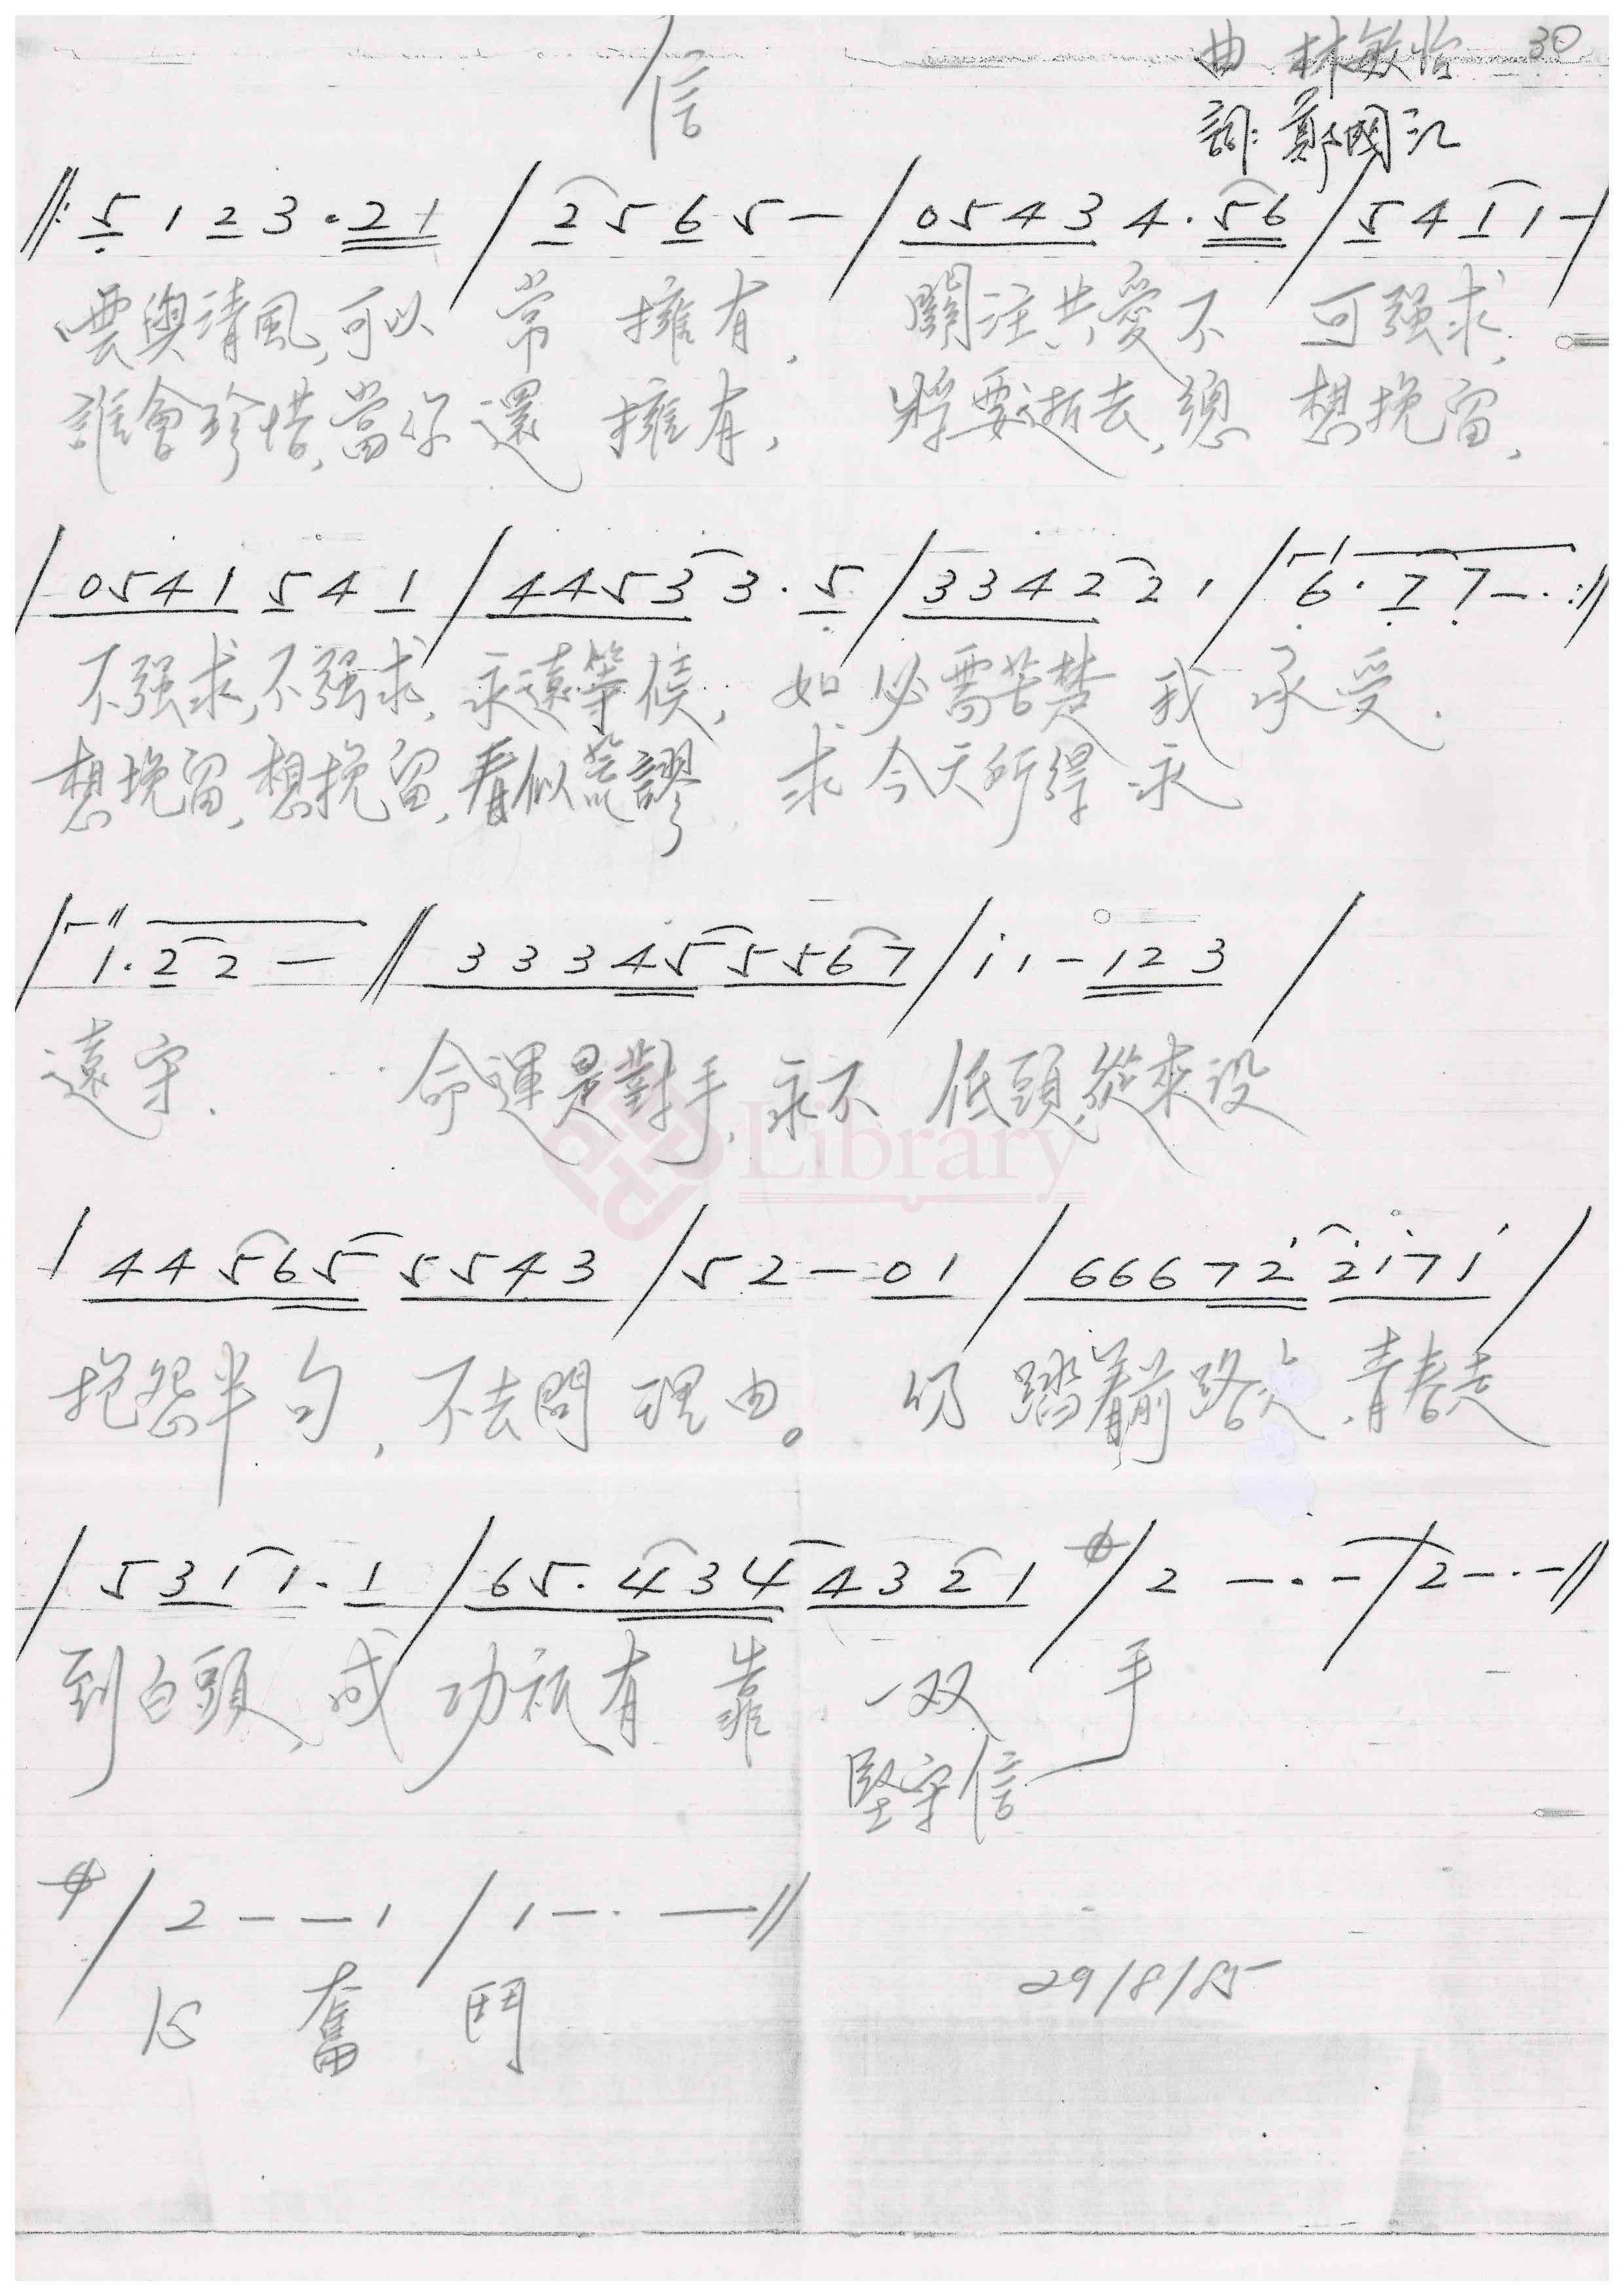 30
信
曲 林敏怡
詞: 鄭國江
//: 5 1 2 3 . 2 1 / 2 5 6 5 — / 0 5 4 3 4 . 5 6 / 5 4 1 1 — /
雲與清風,可以 常 擁有, 關注共愛不 可强求,
誰會珍惜,當你還 擁有, 將要逝去,總 想挽留,
/ 0 5 4 1 5 4 1 / 4 4 5 3 3 . 5 / 3 3 4 2 2 1 / 6 . 7 7 — . ://
不强求,不强求,永遠等候, 如必需苦楚 我 承受.
想挽留,想挽留,看似荒謬, 求今天所得 永
/ 1 . 2 2 — // 3 3 3 4 5 5 5 6 7 / i 1 - 1 2 3 /
遠守. 命運是對手,永不 低頭,從來没
Library
/ 4 4 5 6 5 5 5 4 3 / 5 2 — 0 1 / 6 6 6 7 2 2 i 7 i /
抱怨半句,不去問 理由。 仍 踏着前路走,青春走
/ 5 3 1 1 . 1 / 6 5 . 4 3 4 4 3 2 1 / 2 — . - / 2 — . - //
到白頭,成 功衹有 靠 一双 手
堅守信
/ 2 - — 1 / 1 — . — //
心 奮 鬥
29/8/85